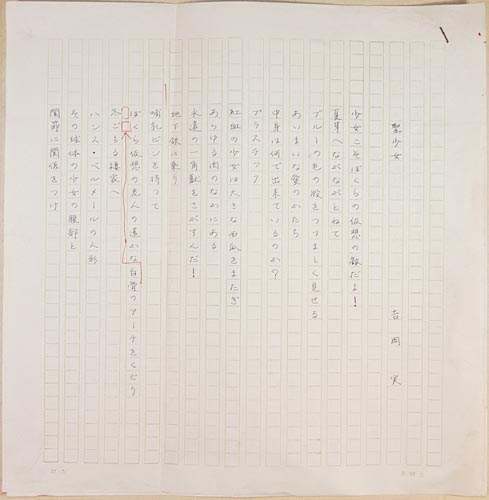 聖少女
吉岡実
少女こそぼくらの仮想の敵だよ！
夏草へながながとねて
ブルーの毛の股をつつましく見せる
あいまいな愛のかたち
中身は何で出来ているのか？
プラスチック
紅血の少女は大きな西瓜をまたぎ
あらゆる肉のなかにある
永遠の一角獣をさがすんだ！
地下鉄に乗り
哺乳ビンを持って
ぼくら仮想の老人の遥かな白骨のアーチをくぐり
冬ごもる棲家へ
ハンス・ベルメールの人形
その球体の少女の腹部と
関節に関係をつけ